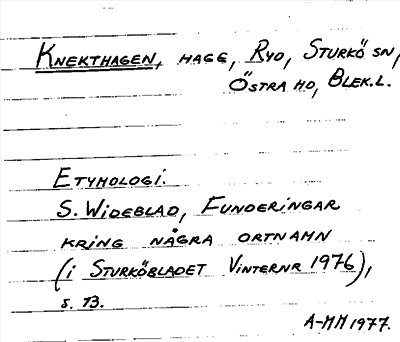 KNEKTHAGEN, HAGE, RYD, STURKÖ SN,
ÖSTRA HD, BLEK.L.
ETYMOLOGI.
S. WIDEBLAD, FUNDERINGAR
KRING NÅGRA ORTNAMN
(i STURKÖBLADET VINTERNR 1976),
s. 13.
A-MM 1977.